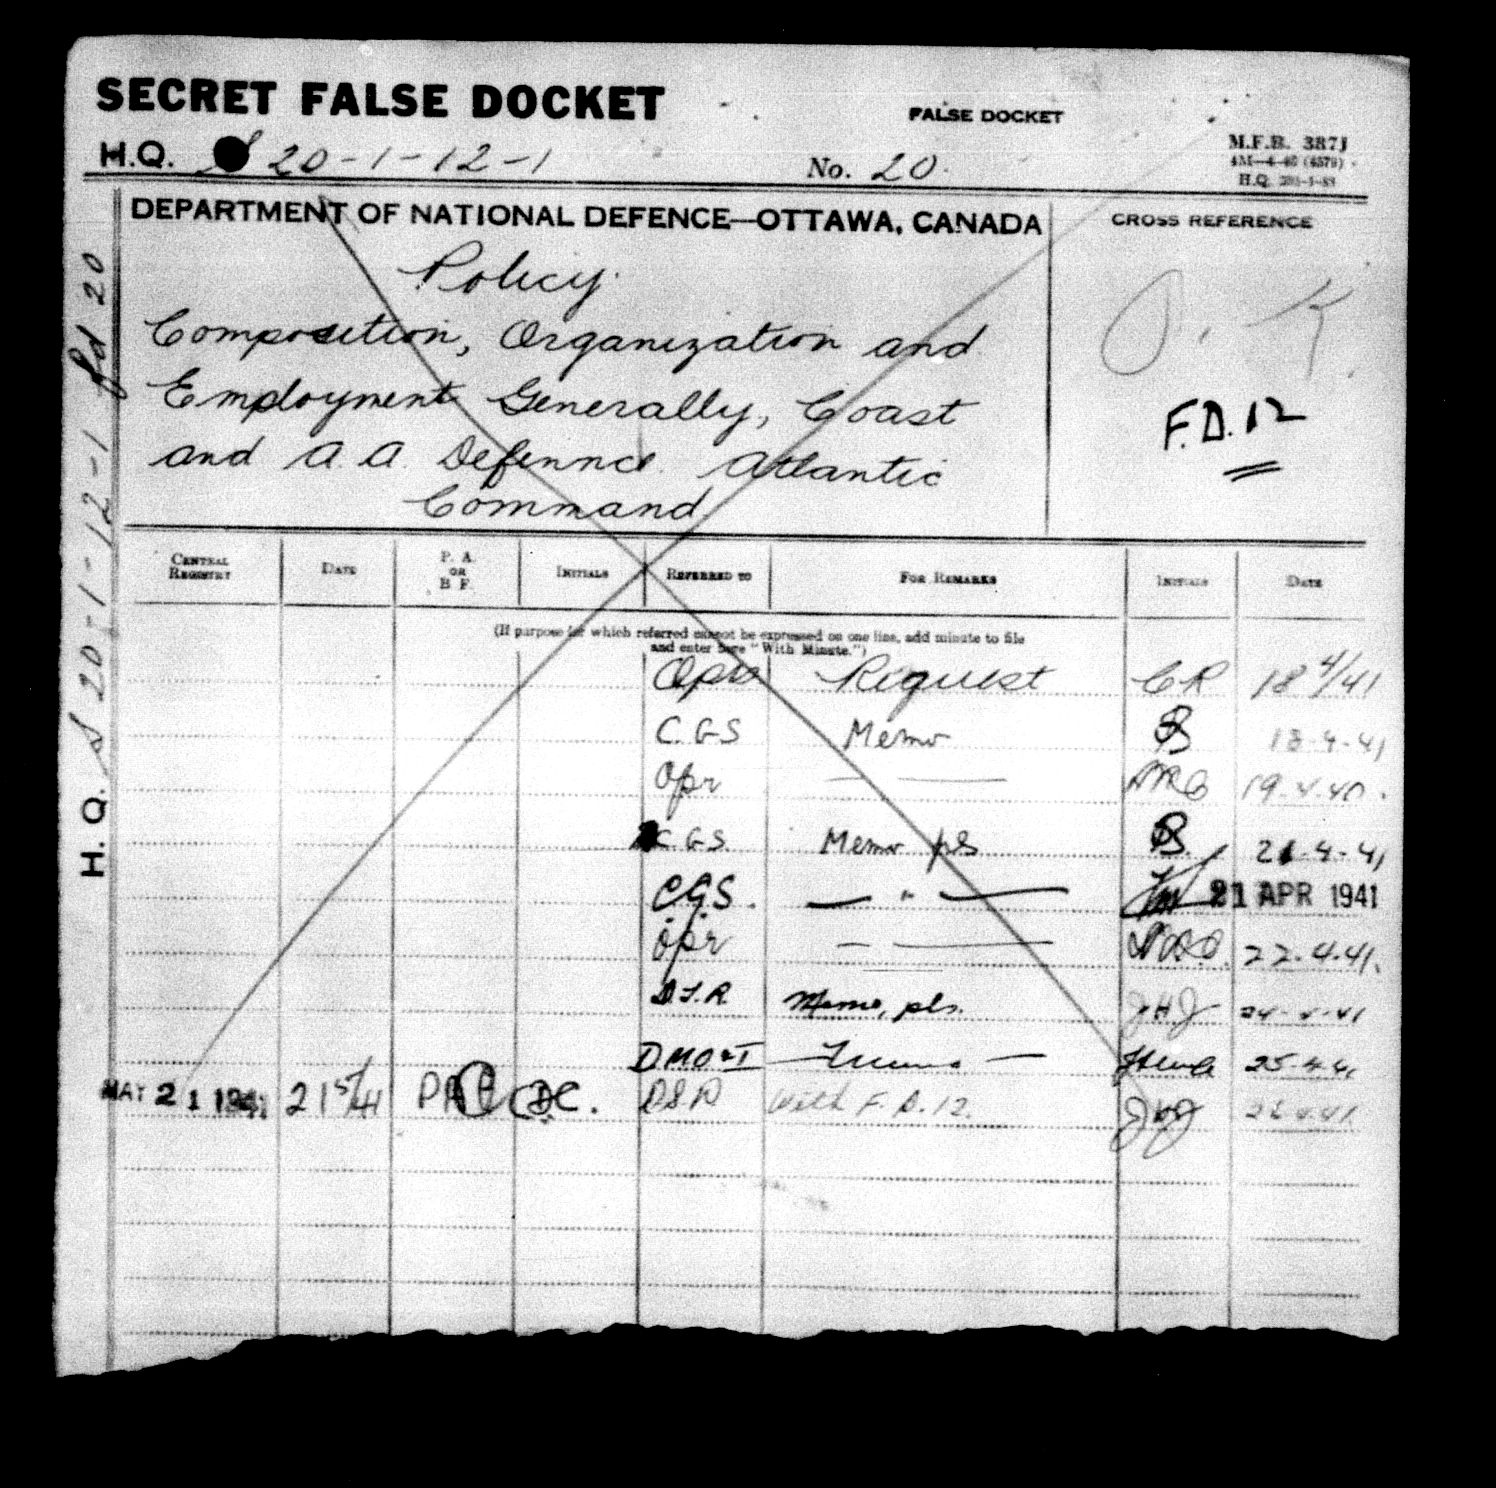 SECRET FALSE DOCKET
FALSE DOCKET
H.Q. S 20-1-12-1
No. 20.
M.F.B. 387J
4M-4-40 (4579)
H.Q.
DEPARTMENT OF NATIONAL DEFENCE—OTTAWA, CANADA
CROSS REFERENCE
Policy
Composition, Organization and
Employment Generally, Coast
and A.A. Defennce. Atlantic
Command
O.K.
F.D. 12
H.Q. S 20-1-12-1 fd 20
CENTRAL REGISTRY DATE P. A. OR B F. INITIALS REFERRED TO FOR REMARKS INITIALS DATE
(If purpose for which referred cannot be expressed on one line, add minute to file
and enter here "With Minute.")
Opr Request CR 18 4/41
C.G.S Memo 18-4-41
Opr — — 19.4.40.
C.G.S. Memo pls 21-4-41
C.G.S. — " — 21 APR 1941
Opr — — 22.4.41.
Memo, pls. JHJ 24-4-41
DMO&I — — 25-4-41
MAY 21 1941 21 5/41 PA with F.D.12. JHJ